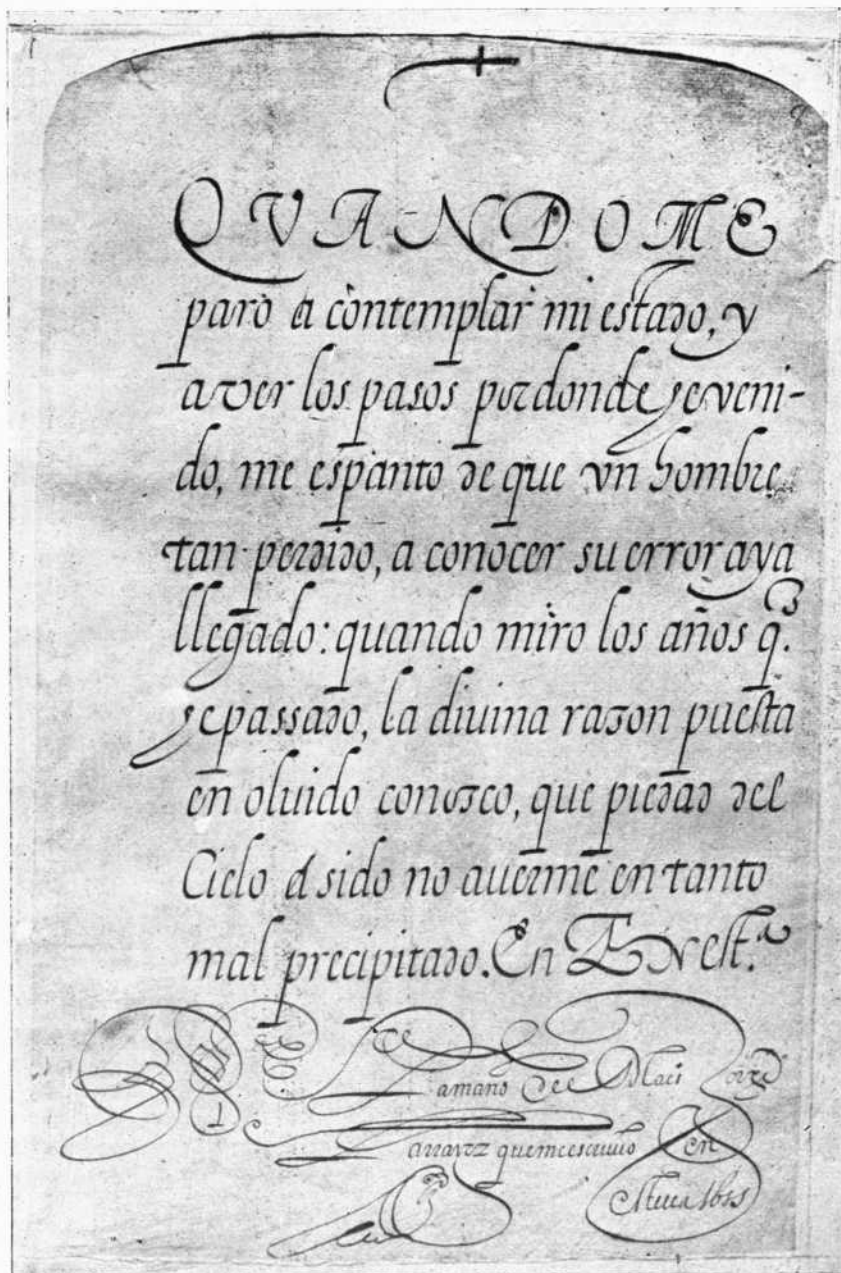 QVANDO ME
paro a contemplar mi estado, y
a ver los pasos por donde he veni-
do, me espanto de que vn hombre
tan perdido, a conocer su error aya
llegado: quando miro los años q.
he passado, la diuina razon puesta
en oluido conozco, que piedad del
Cielo a sido no auerme en tanto
mal precipitado. En
amano
que me escriuio en
1655